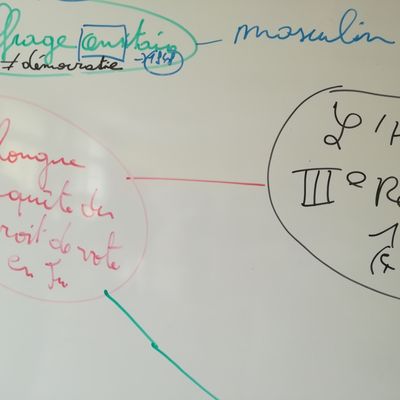 ffrage censitaire — masculin
≠ démocratie → 1848
longue
quête du
roit de vote
en Fr
L'H
IIIe Ré
1